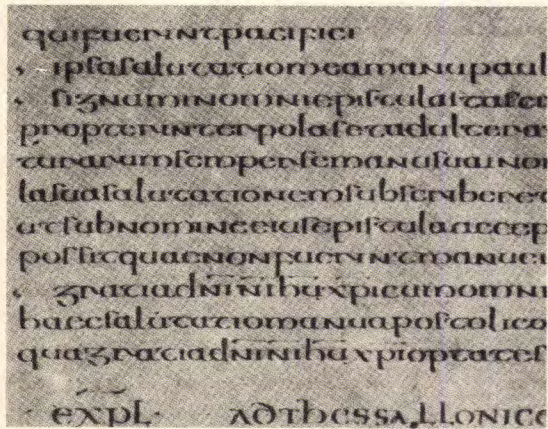 quifuerintpacifici
, ipsasalutatiomeamanupaul
, signuminomniepistulaita
propterinterpolasetadultera
turarumsempersemanusuainom
lasuasalutationemsubscriberet
utsubnomineeiusepistulaaccep
possitquaenonfuerintmanuei
, gratiadn̄īn̄īih̄ūxp̄icumomni
haecsalutatiomanuapostolico
quagratiadn̄īn̄īih̄ūxp̄īoptates
· exp̄l· adthessallonice